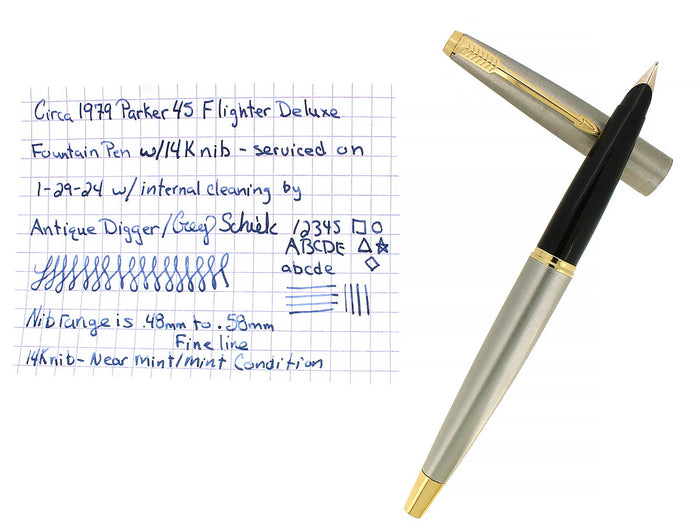 Circa 1979 Parker 45 Flighter Deluxe
Fountain Pen w/14K nib - serviced on
1-29-24 w/ internal cleaning by
Antique Digger/Greg Schiek 12345
ABCDE
abcde
Nib range is .48mm to .58mm
Fine line
14K nib - Near mint/mint Condition